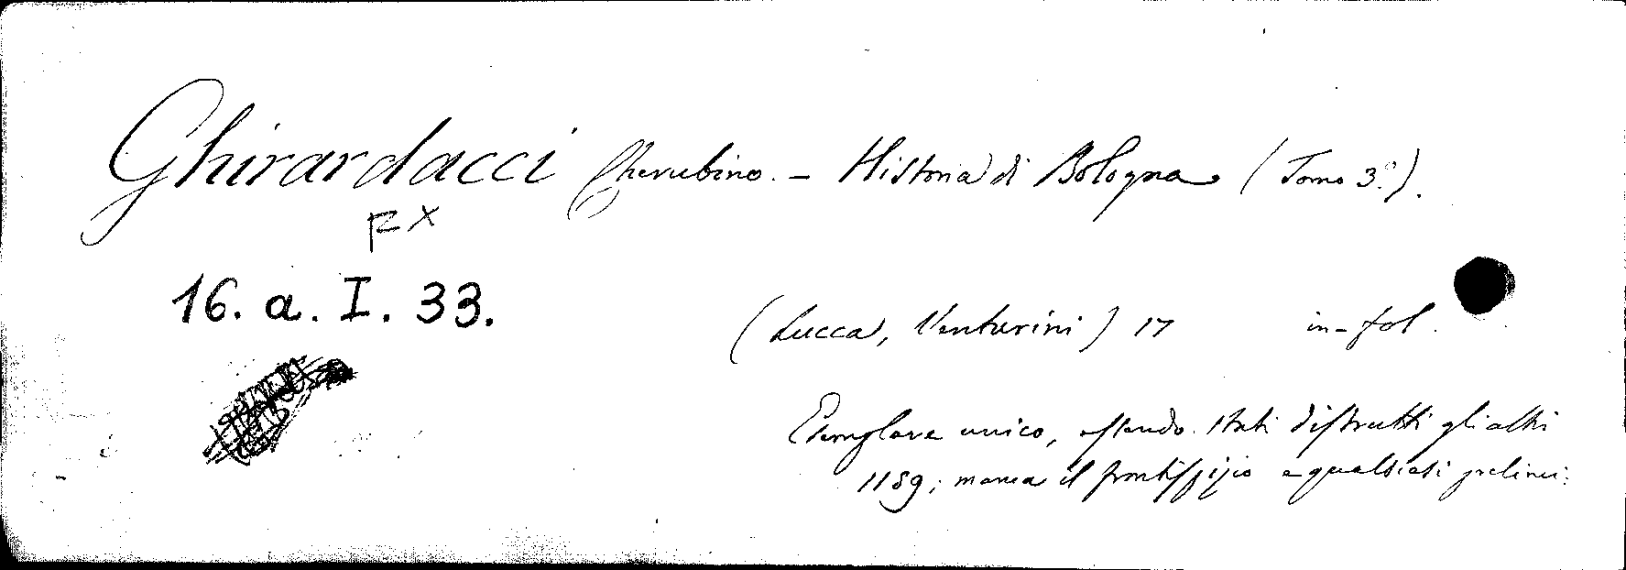 Ghirardacci Cherubino. - Historia di Bologna (Tomo 3.º).
FX
16. a. I. 33.
(Lucca, Venturini) 17 in-fol.
Esemplare unico, essendo stati distrutti gli altri
1189; manca il frontispizio e qualsiasi prelimi: